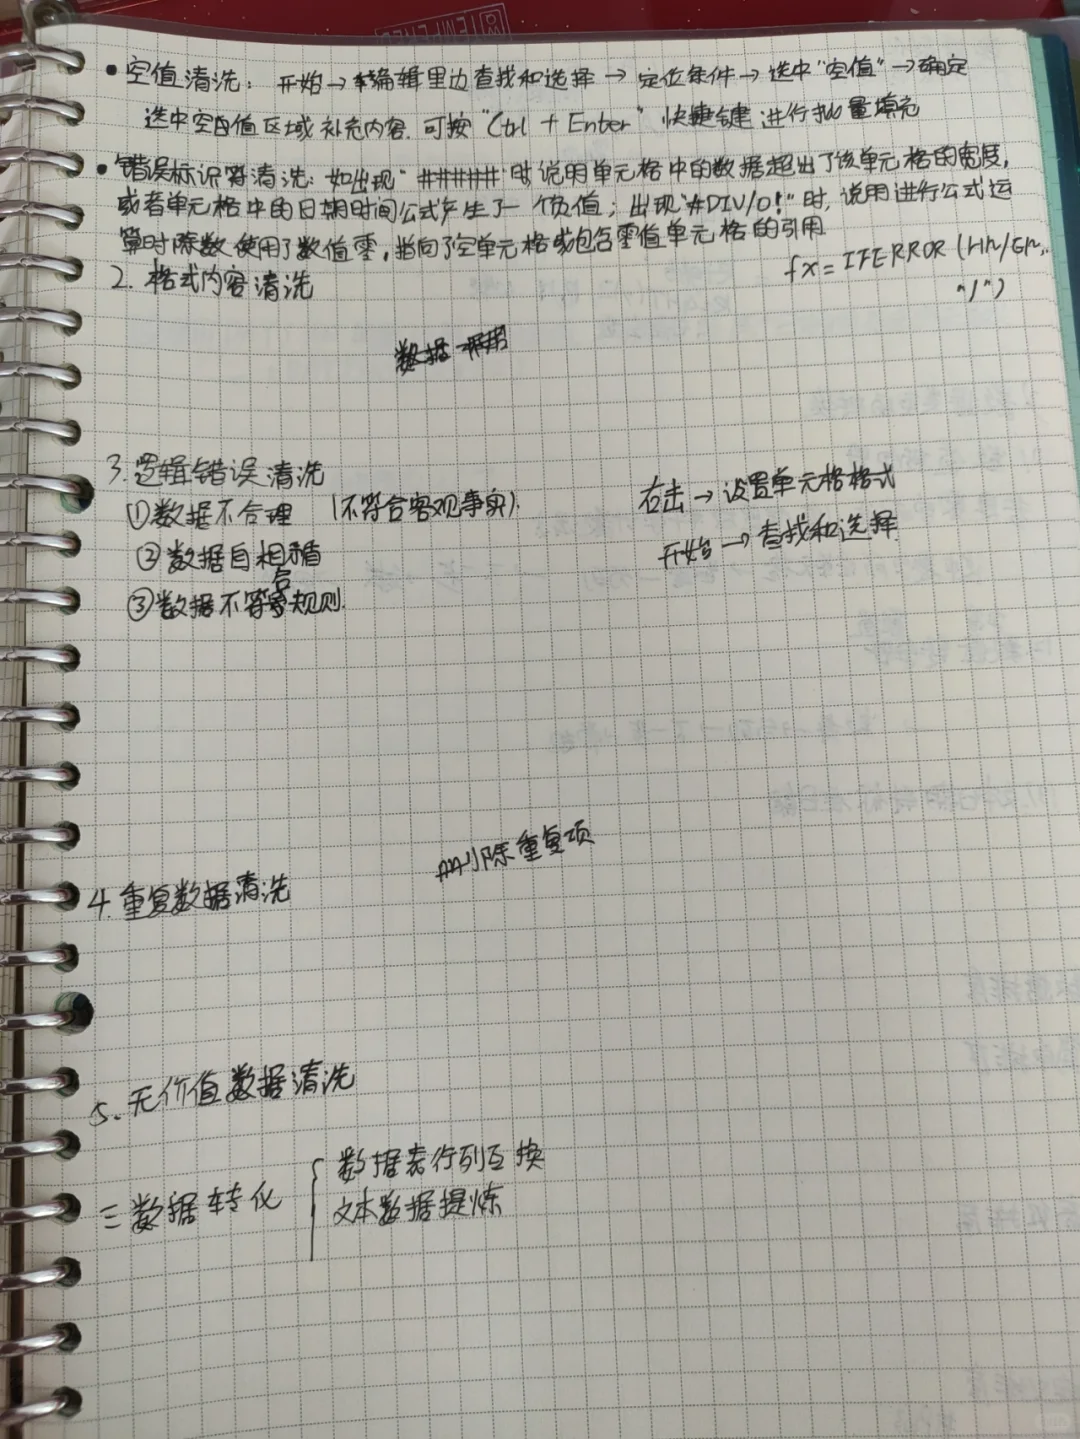 • 空值清洗：开始→编辑里边查找和选择→定位条件→选中“空值”→确定
选中空白值区域补充内容.可按“Ctrl + Enter”快捷键进行批量填充
• 错误标识符清洗：如出现“#####”时说明单元格中的数据超出了该单元格的宽度,
或者单元格中的日期时间公式产生了一个负值；出现“#DIV/0!”时,说明进行公式运
算时除数使用了数值零,指向了空单元格或包含零值单元格的引用
fx=IFERROR(
"/")
2. 格式内容清洗
3.逻辑错误清洗
①数据不合理 (不符合客观事实).
右击→设置单元格格式
②数据自相矛盾
开始→查找和选择
③数据不符合规则.
删除重复项
4.重复数据清洗
5.无价值数据清洗
三数据转化
数据表行列互换
文本数据提炼